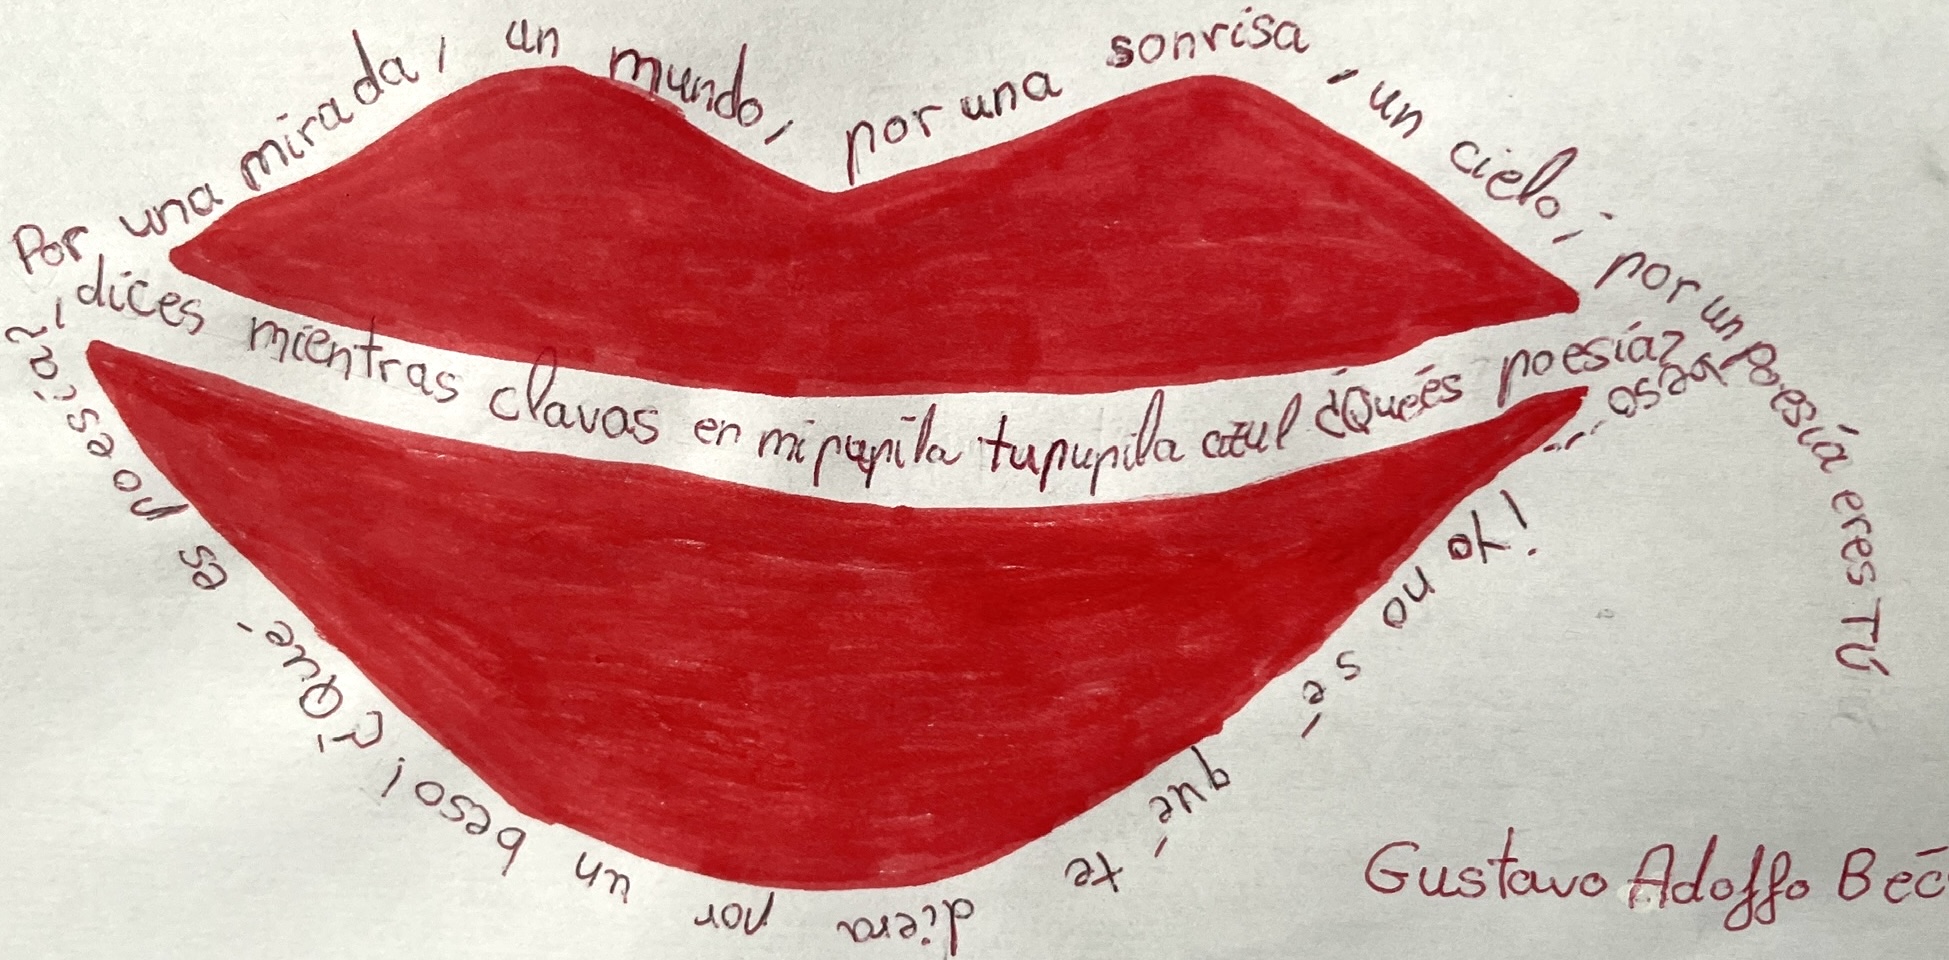 Por una mirada, un mundo, por una sonrisa, un cielo; por un
beso...
¡Yo no sé qué te diera por un beso! ¿Qué es poesía,
dices mientras clavas en mi pupila tu pupila azul ¿Qué és poesía?
Poesía eres TÚ
Gustavo Adolfo Béc